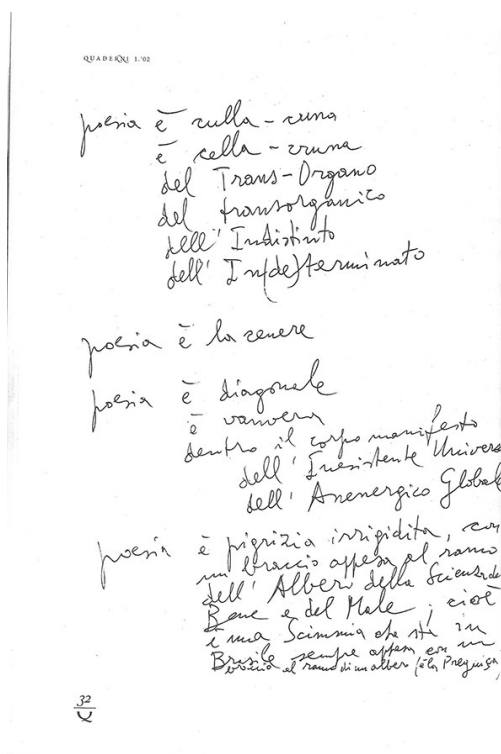 QUADERNI 1.'02
poesia è culla-cuna
è cella-cruna
del Trans-Organo
del transorganico
dell'Indistinto
dell'In(de)terminato
poesia è la cenere
poesia è diagonale
è vanvera
dentro il corpo manifesto
dell'Inesistente Univers
dell'Anenergico Global
poesia è pigrizia irrigidita, con
un braccio appesa al ramo
dell'Alberi della Scienza de
Bene e del Male; cioè
è una Scimmia che sta in
Brasile sempre appesa con un
braccio al ramo di un albero (è la Preguiça,
32
Q